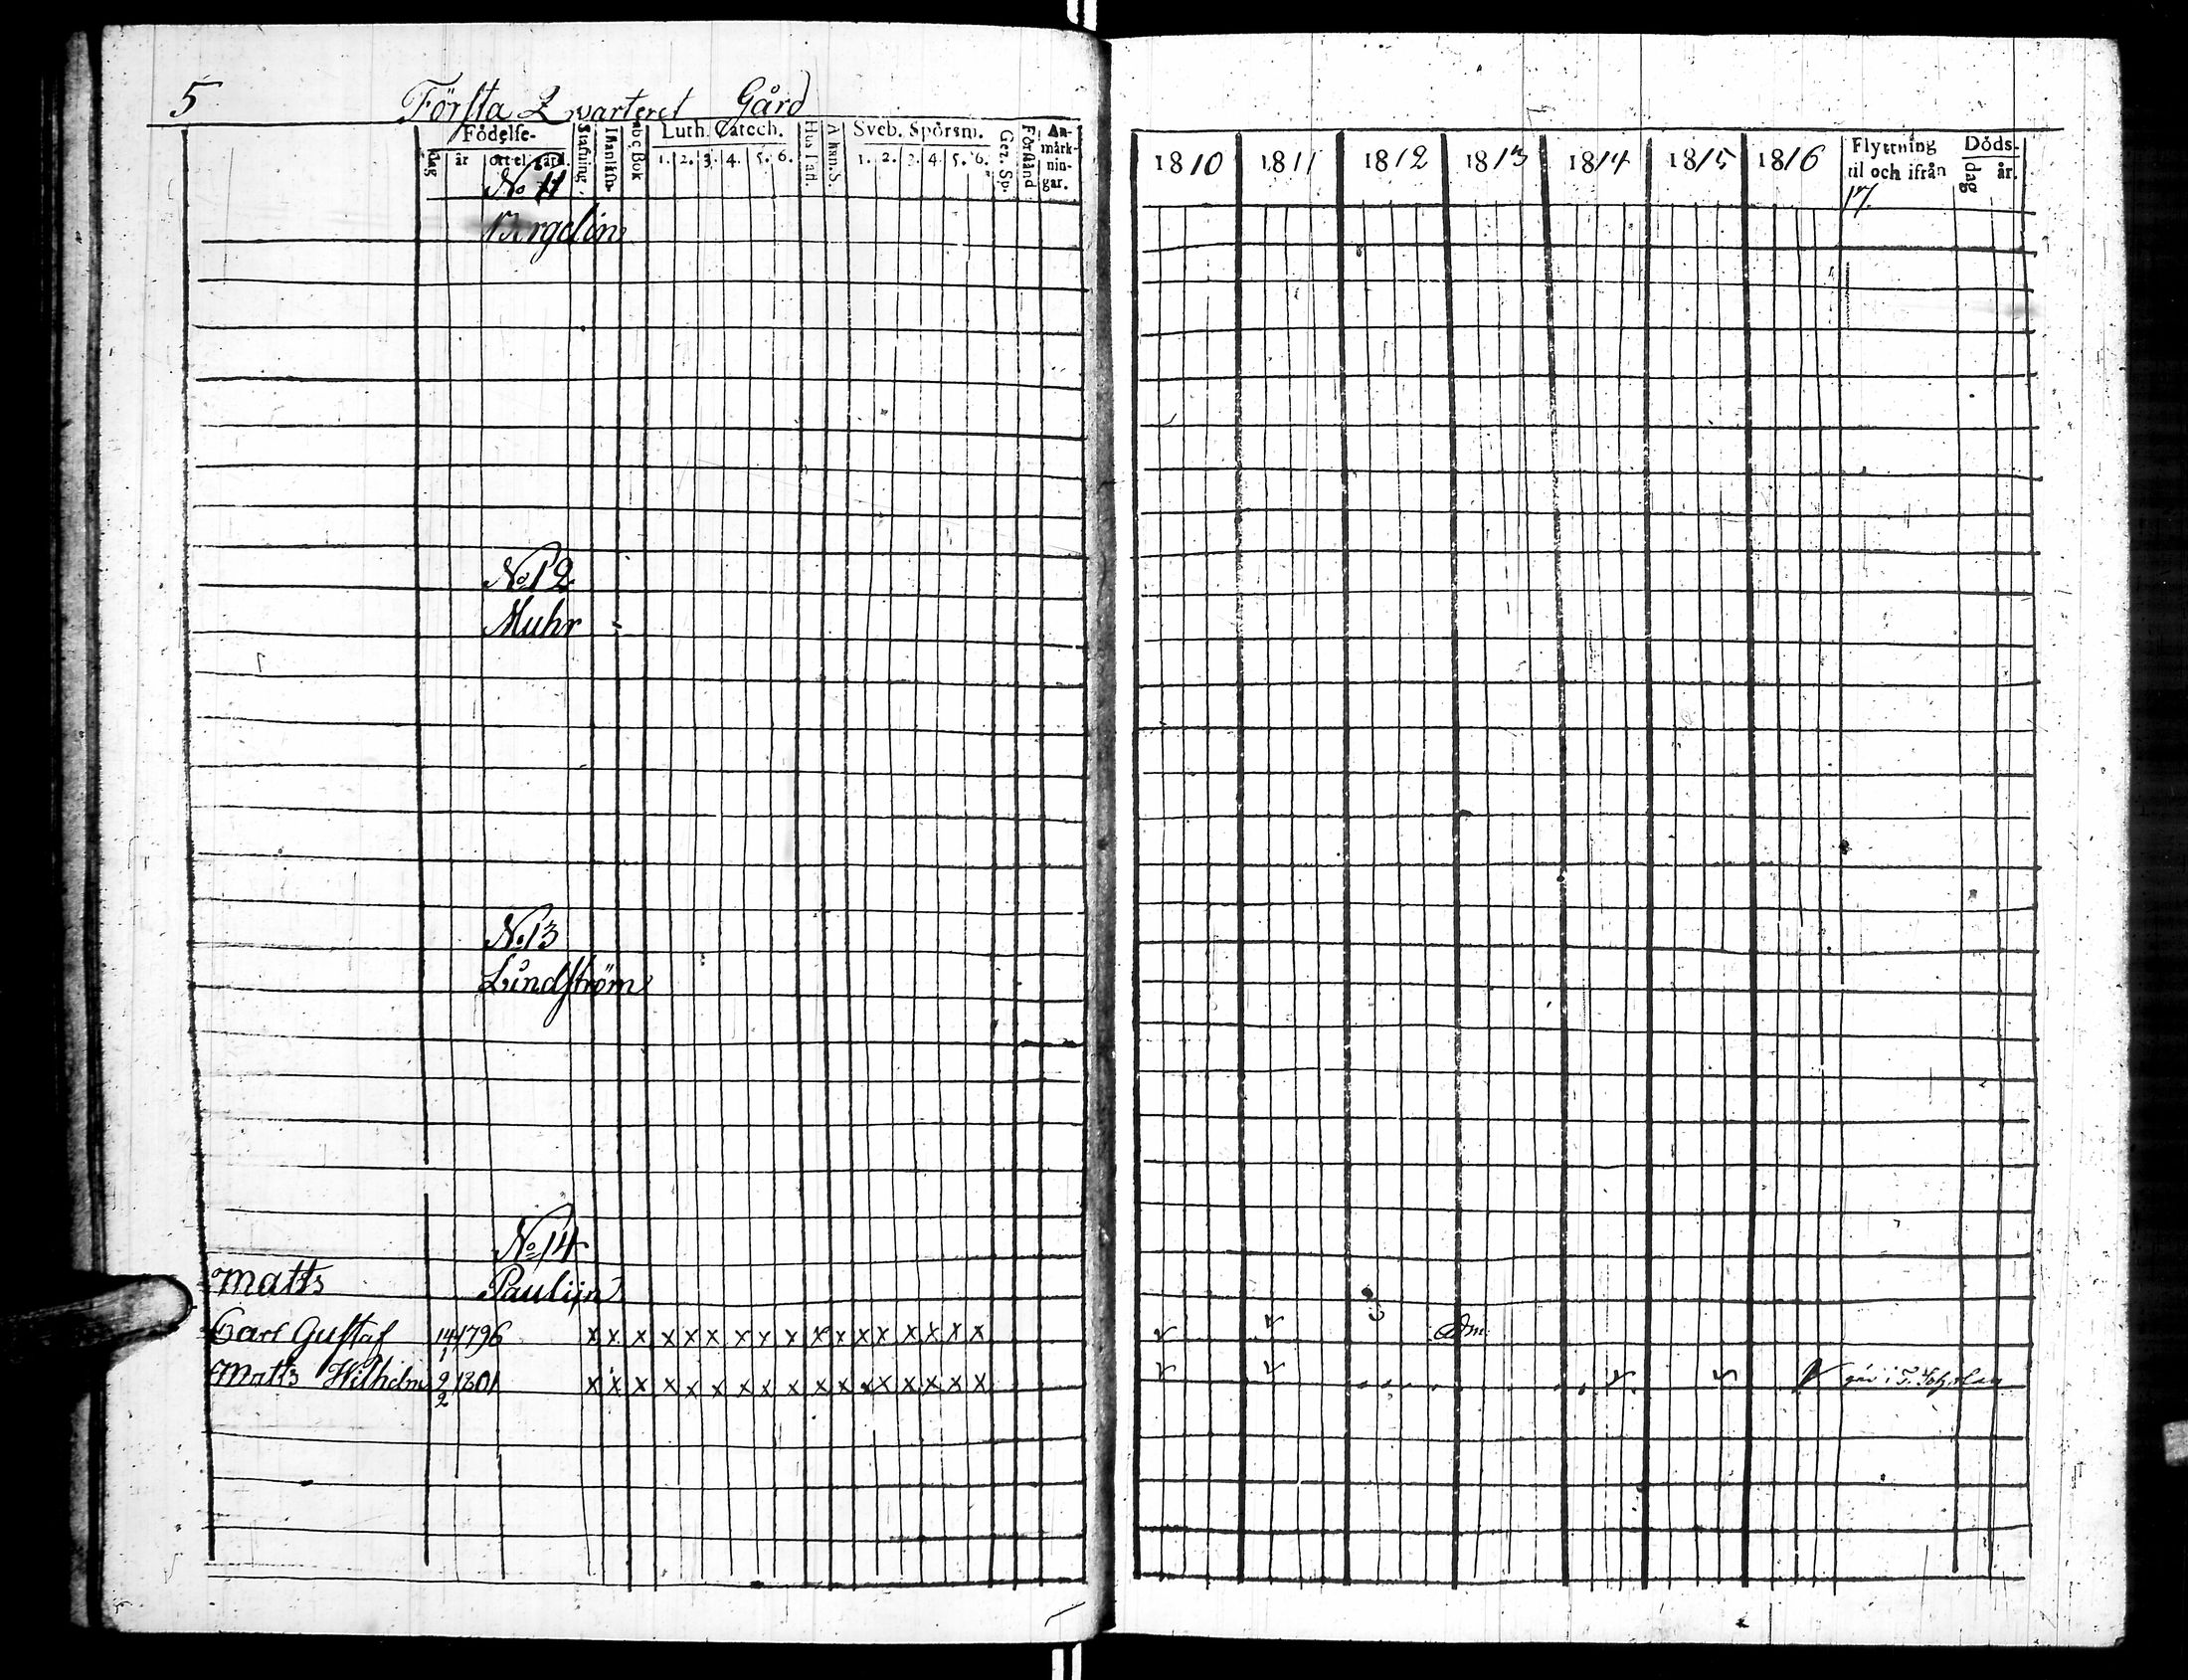 5 Första Qvarteret Gård
Födelse- Stafning. Innanläsn. abc Bok Luth. Catech. Hus Tafl. Athan. S. Sveb. Spörsm. Gez. Sp. Förstånd An-märk-nin-gar.
dag år ort el. gård. 1. 2. 3. 4. 5. 6. 1. 2. 3. 4. 5. 6.
1810 1811 1812 1813 1814 1815 1816 17. Flyttning til och ifrån Döds- dag år.
No 11
Bergelin
No 12
Muhr
No 13
Lundström
No 14
Matts Paulijn
Carl Gustaf 14/1 1796 x x x x x x x x x x x x x x x x x
Matts Wilhelm 2/2 1801 x x x x x x x x x x x x x x x x x